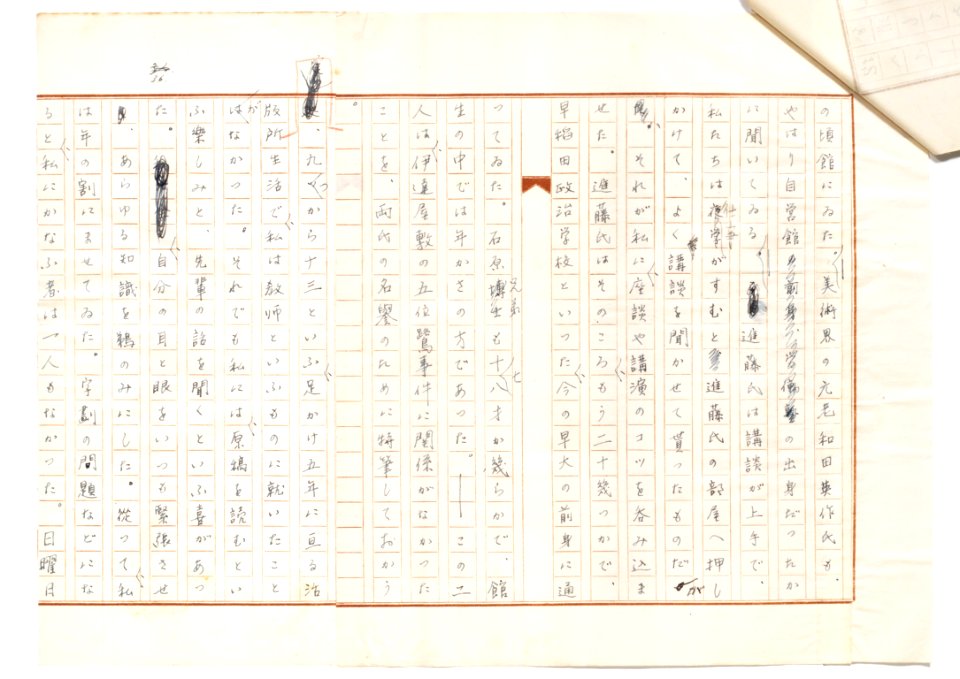 の頃館にゐた。美術界の元老和田英作氏も、
やはり自営館の出身だつたか
に聞いてゐる。進藤氏は講談が上手で、
私たちは仕事がすむと進藤氏の部屋へ押し
かけて、よく講談を聞かせて貰つたものだが
、それが私に座談や講演のコツを呑み込ま
せた。進藤氏はそのころもう二十幾つかで、
早稲田政治学校といつた今の早大の前身に通
つてゐた。石原兄弟も十七八才か幾らかで、館
生の中では年かさの方であつた。——この二
人は伊達屋敷の五位鷺事件に関係がなかつた
ことを、両氏の名誉のために特筆しておかう
。
、九つから十三といふ足かけ五年に亘る治
版所生活で私は教師といふものに就いたこと
がなかつた。それでも私には原稿を読むとい
ふ楽しみと、先輩の話を聞くといふ喜があつ
た。自分の目と眼をいつも緊張させ
、あらゆる知識を鵜のみにした。従つて私
は年の割にませてゐた。字劃の問題などにな
ると私にかなふ者は一人もなかつた。日曜日